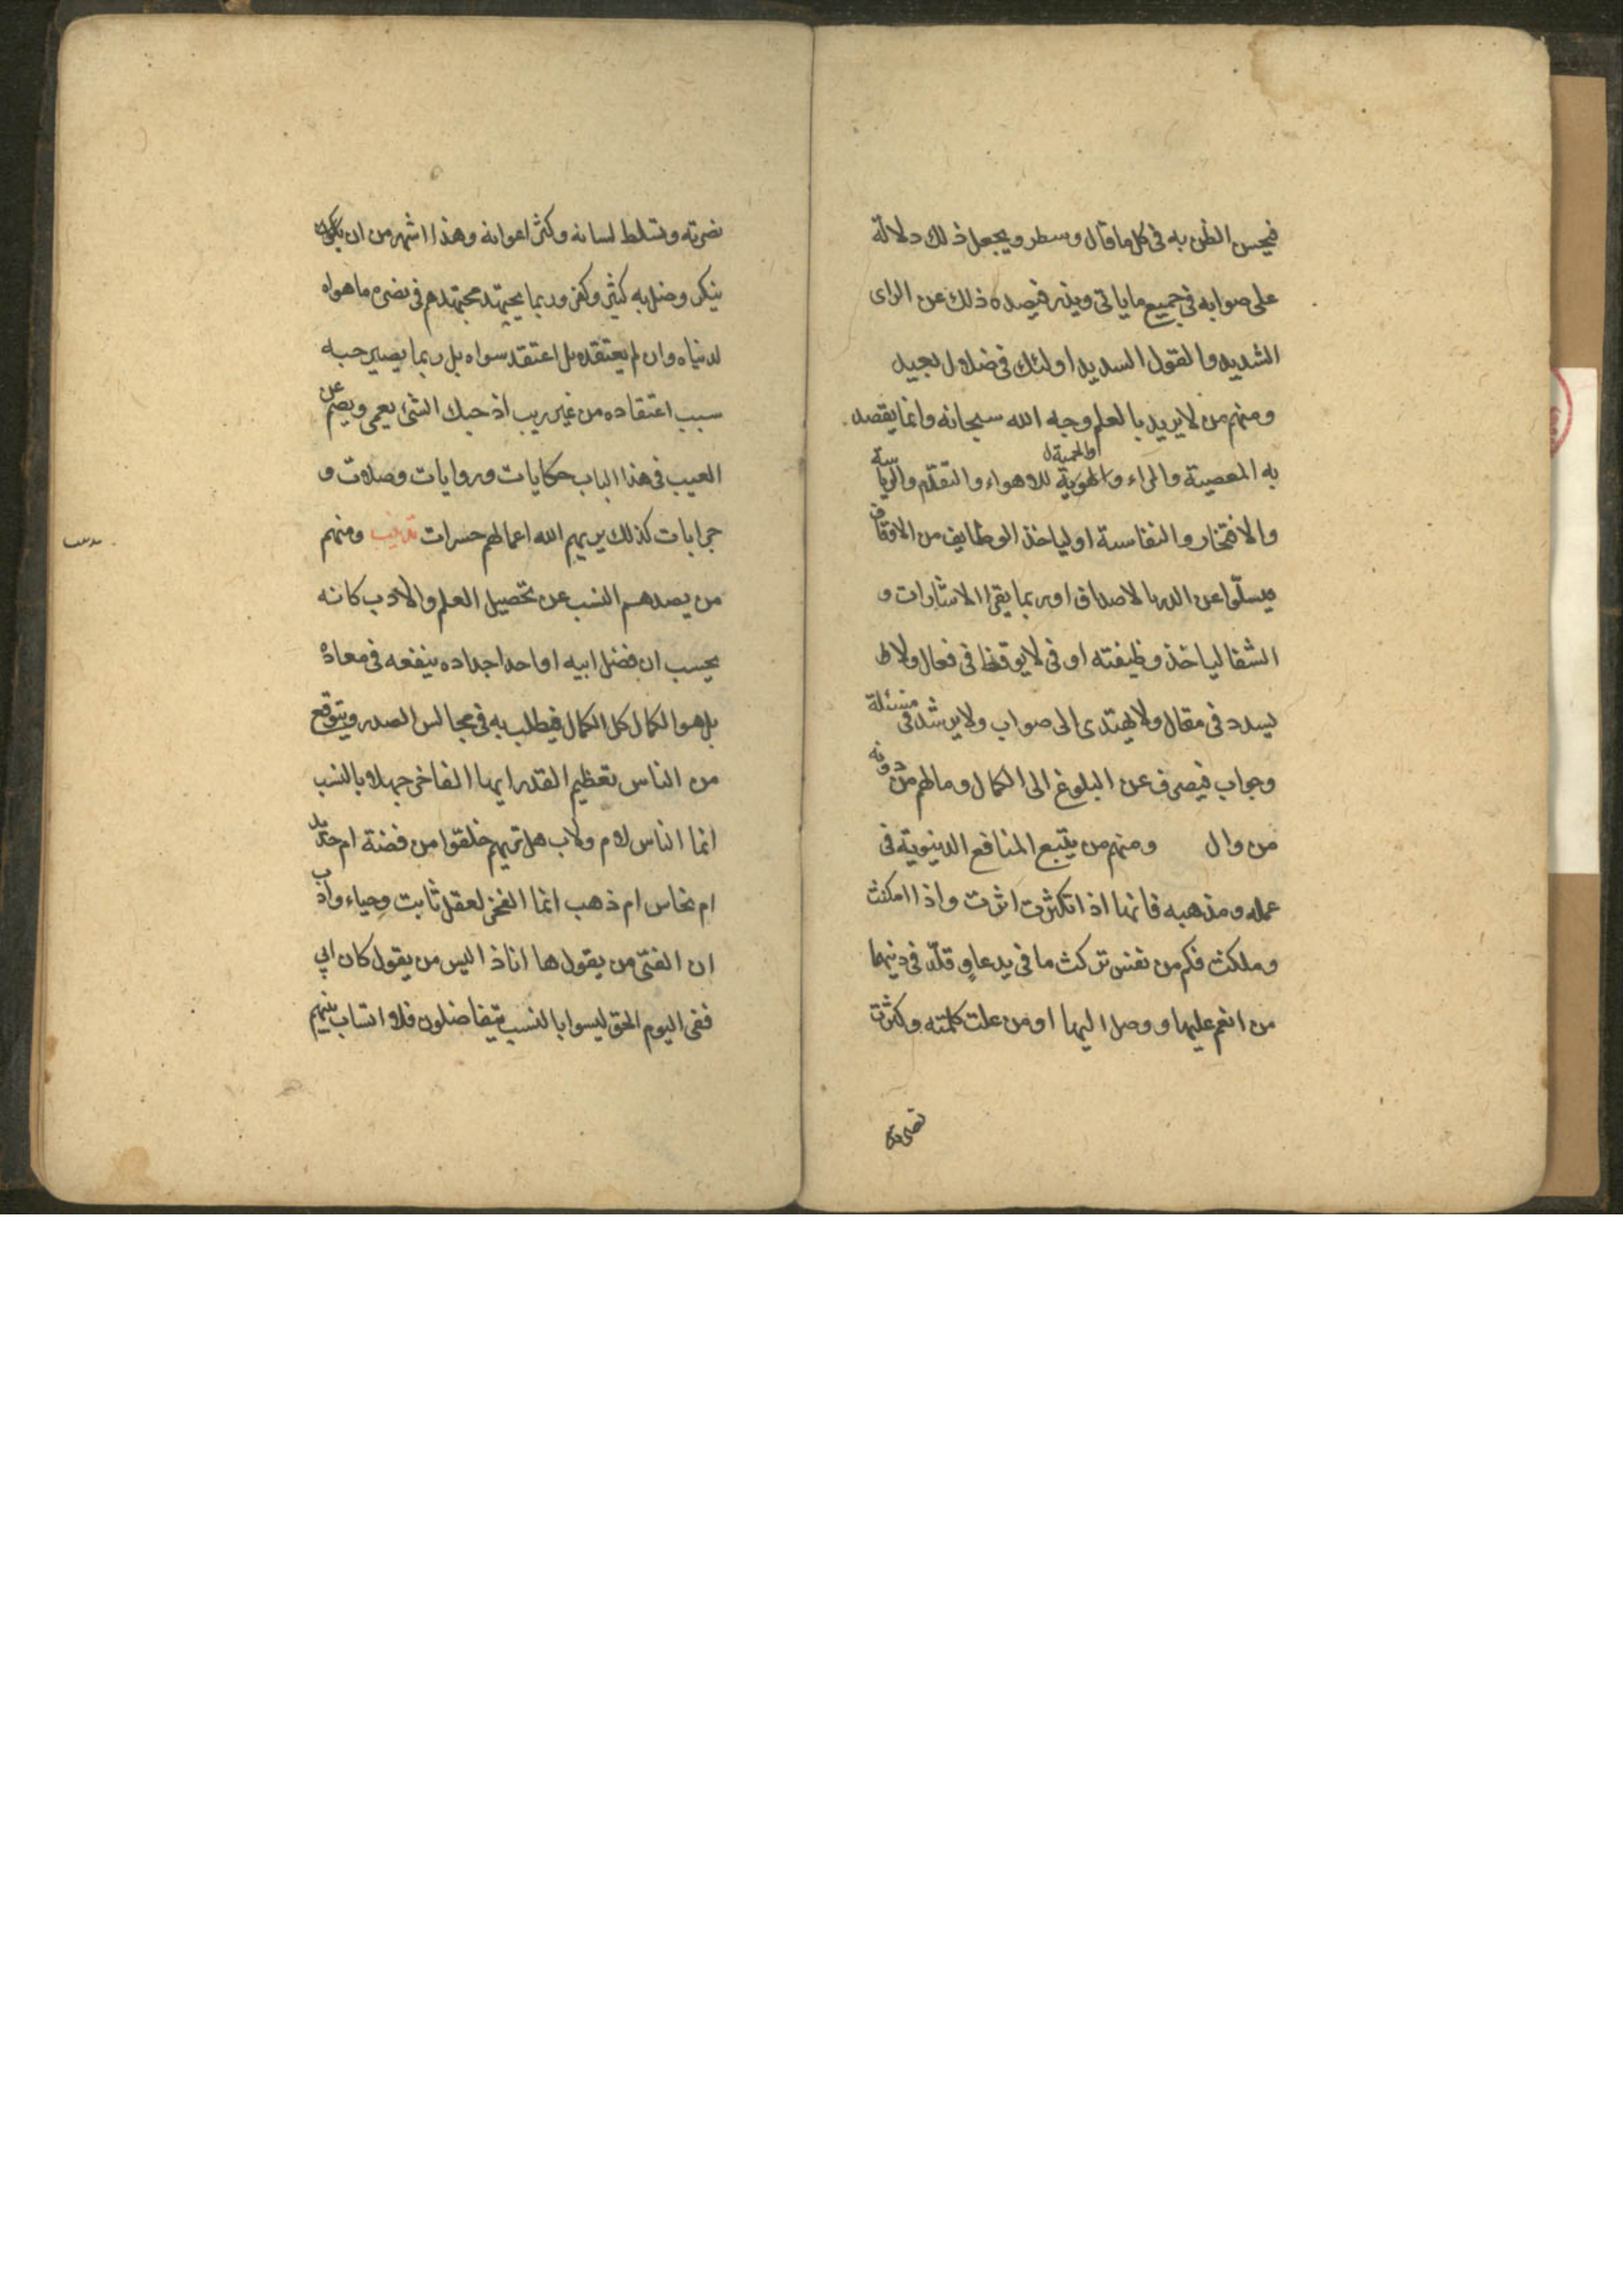 فيحسن الظن به في كل ما قال وسطر ويجعل ذلك دلالة
على صوابه في جميع ما ياتي ويذر فيصده ذلك عن الراى
الشديد والقول السديد اولئك في ضلال بعيد
ومنهم من لا يريد بالعلم وجه الله سبحانه وانما يقصد
به المعصية والمراء والحمية للاهواء والتقدم والرياسة
والافتخار والنفاسة او لياخذ الوظايف من الاوقاف
عن الدر بالاصداف او ربما يقرا الاشارات و
الشفا لياخذ وظيفته او في لا يوقظا في فعال ولا
يسدد في مقال ولا يهتدى الى صواب ولا يرشد في مسئلة
وجواب فيصرف عن البلوغ الى الكمال وما لهم من دونه
من وال ومنهم من يتبع المنافع الدنيوية في
عمله ومذهبه فانها اذا تكثرت اثرت واذا امكنت
وملكت فكم من نفس تركت ما في يدها وقلد في دينها
من انعم عليها ووصل اليها او من علت كلمته وكثرت
نصرته
نصرته وتسلط لسانه وكثر اعوانه وهذا اشهر من ان
ينكر وضل به كثير وكفر وربما يجتهد مجتهدهم في نصرة ما هواه
لدنياه وان لم يعتقده بل اعتقد سواه بل ربما يصير حبه
سبب اعتقاده من غير ريب اذ حبك الشئ يعمى ويصم عن
العيب في هذا الباب حكايات وروايات وصلات و
جرايات كذلك يريهم الله اعمالهم حسرات تذنيب ومنهم
من يصدهم النسب عن تحصيل العلم والادب كانه
يحسب ان فضل ابيه او احد اجداده ينفعه في معاده
بل هو الكمال كل الكمال فيطلب به في مجالس الصدر ويتوقع
من الناس تعظيم القدر ايها الفاخر جهلا بالنسب
انما الناس لام ولاب هل تريهم خلقوا من فضة ام حديد
ام نحاس ام ذهب انما الفخر لعقل ثابت وحياء وادب
ان الفتى من يقول ها انا ذا ليس من يقول كان ابي
ففى اليوم الحق ليسوا بالنسب يتفاضلون فلا انساب بينهم